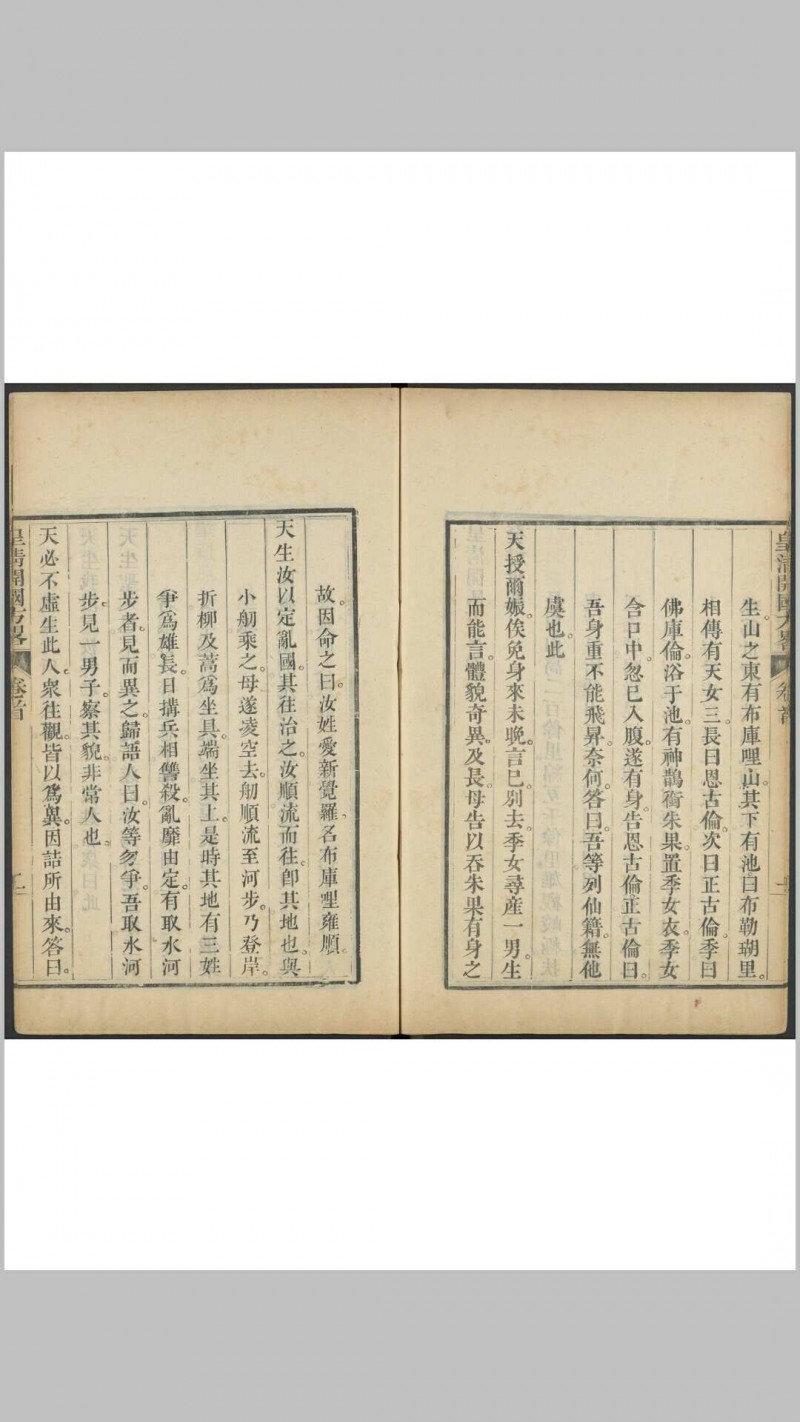 生。山之東有布庫哩山。其下有池曰布勒瑚里。
相傳有天女三長曰恩古倫。次曰正古倫。季曰
佛庫倫。浴于池。有神鵲銜朱果。置季女衣。季女
含口中。忽已入腹。遂有身。告恩古倫正古倫曰。
吾身重不能飛昇。奈何。答曰。吾等列仙籍。無他
虞也。此
天授爾娠。俟免身來未晚。言已。別去。季女尋産一男。生
而能言。體貌奇異。及長。母告以吞朱果有身之
故。因命之曰汝姓愛新覺羅。名布庫哩雍順。
天生汝以定亂國。其往治之。汝順流而往。卽其地也。與
小舠乘之。母遂凌空去。舠順流至河步。乃登岸。
折柳及蒿爲坐具。端坐其上。是時其地有三姓
爭爲雄長。日搆兵相讐殺。亂靡由定。有取水河
步者。見而異之。歸語人曰。汝等勿爭。吾取水河
步。見一男子。察其貌。非常人也。
天必不虛生此人。衆往觀。皆以爲異。因詰所由來。答曰。
皇清開國方畧
卷首
二